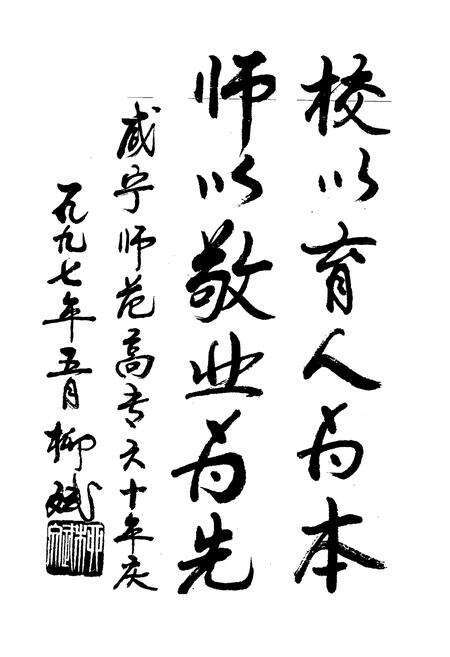 校以育人为本
师以敬业为先
咸宁师范高专六十年庆
一九九七年五月柳斌